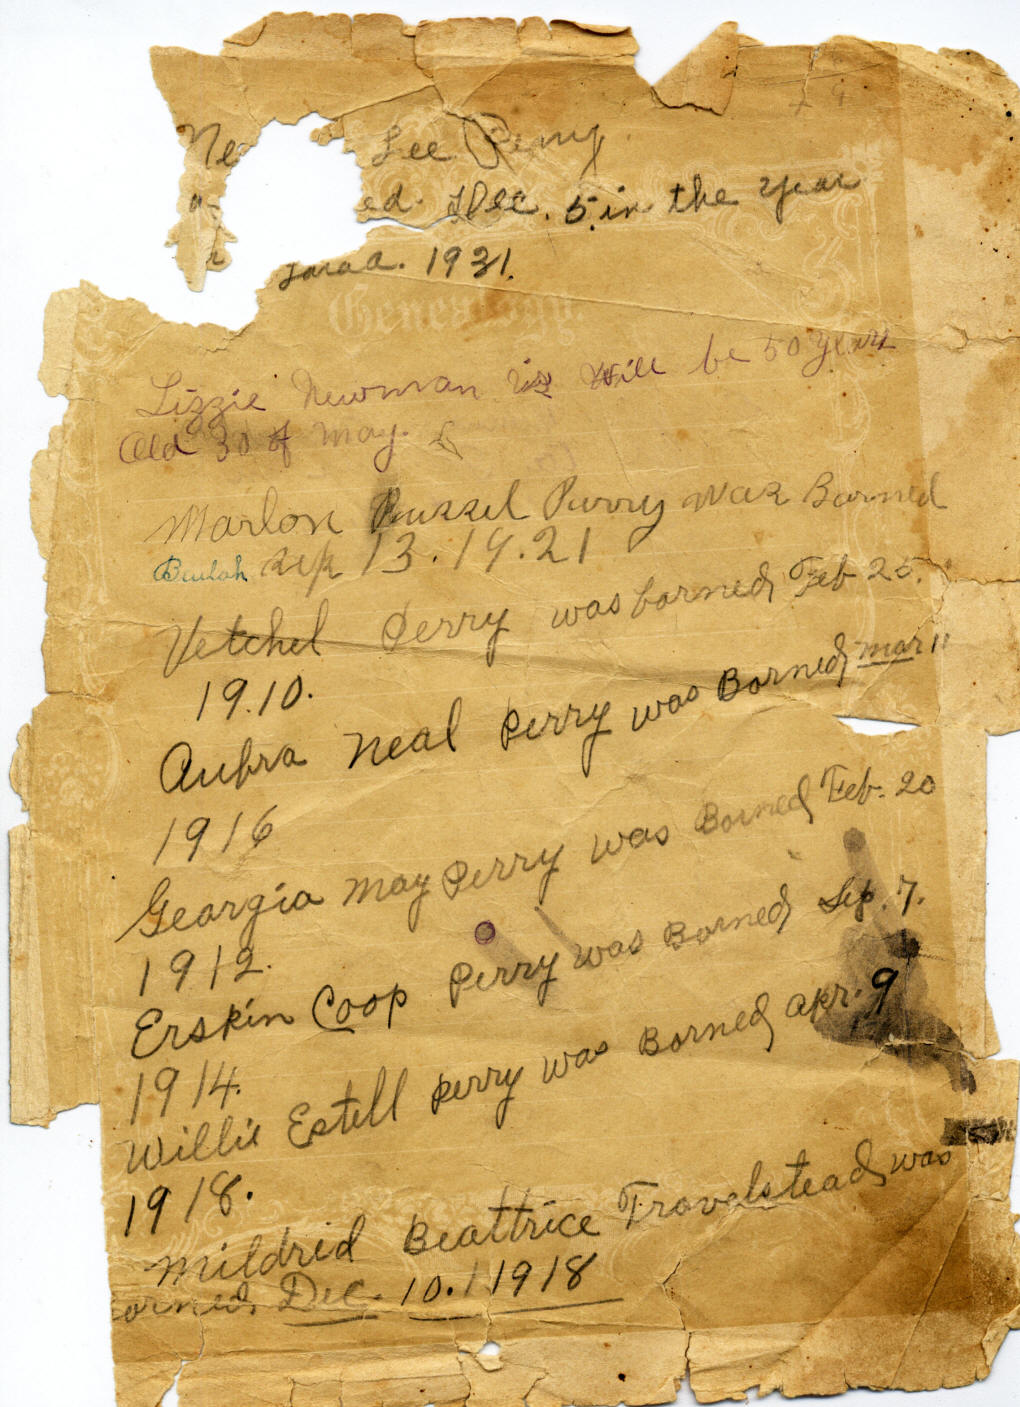 Ne Lee Perry
ed. Dec. 5 in the year
1931.
Genealogy.
Lizzie Newman is Will be 50 years
Old 30 of may.
Marlon Russel Purry was Borned
Beulah sep 13. 19.21
Vetchel Perry was borned Feb 25.
1910.
Aubra neal Perry was Borned mar 11
1916
Georgia may Perry was Borned Feb. 20
1912.
Erskin Coop Perry was Borned Sep. 7.
1914.
Willie Estell Perry was Borned apr. 9
1918.
Mildrid Beattrice Travelstead was
orned Dec. 10. 1918